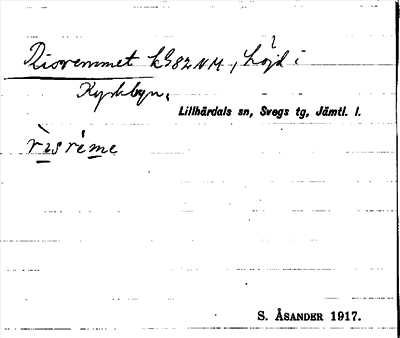 Risremmet kG82NM., höjd i
?
Kyrkbyn.
Lillhärdals sn, Svegs tg, Jämtl. l.
rìsréme
S. ÅSANDER 1917.